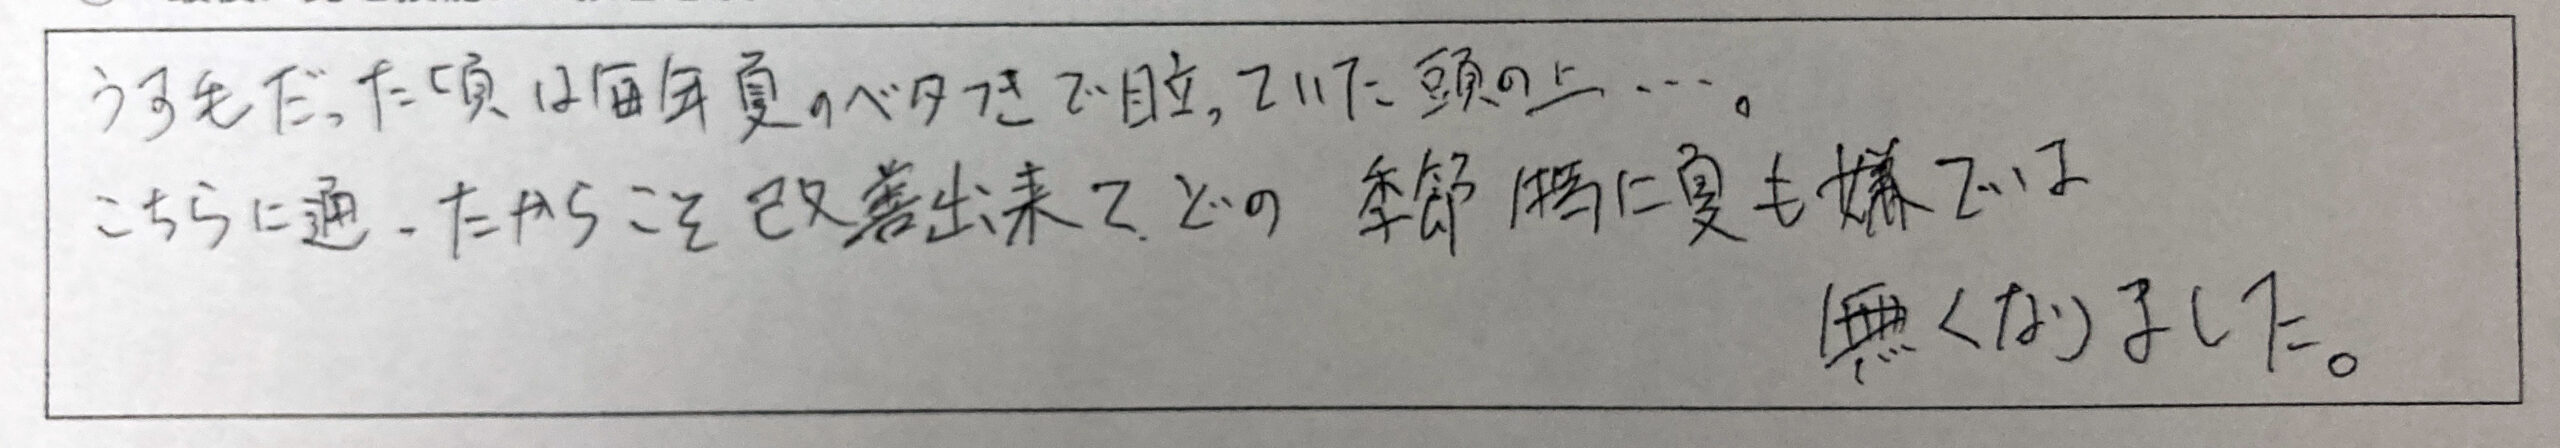 うす毛だった頃は毎年夏のベタつきで目立っていた頭の上…。
こちらに通ったからこそ改善出来て、どの季節特に夏も嫌では
無くなりました。